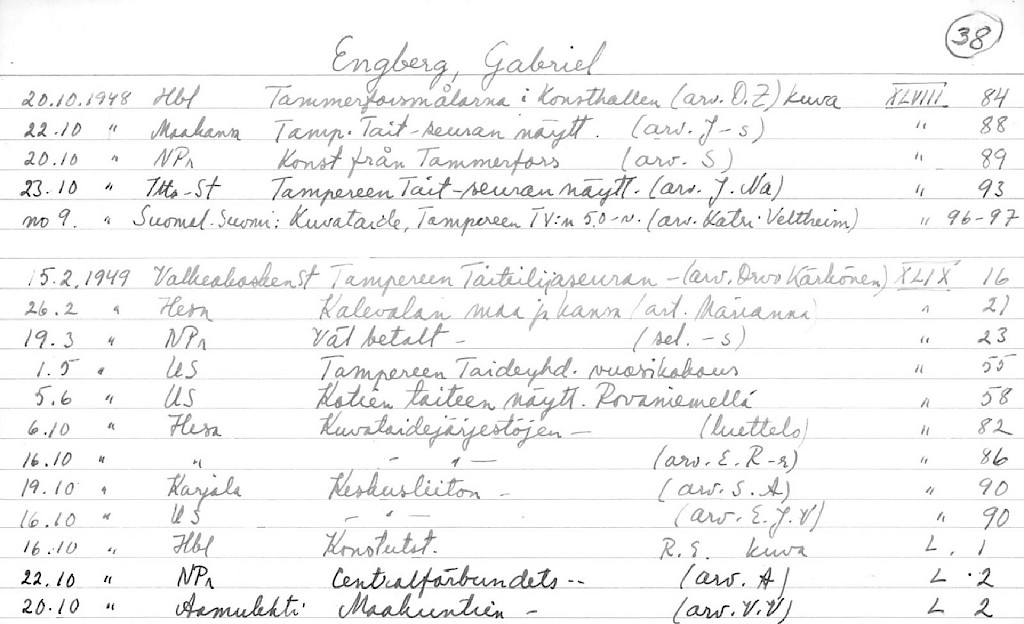 38
Engberg, Gabriel
20.10.1948 Hbl Tammerforsmålarna i Konsthallen (arv. D.Z) kuva XLVIII 84
22.10 " Maakansa Tamp. Tait-seuran näytt. (arv. J-s) " 88
20.10 " NPr Konst från Tammerfors (arv. S) " 89
23.10 " -St Tampereen Tait-seuran näytt. (arv. J. Va) " 93
no 9. " Suomal. Suomi: Kuvataide, Tampereen TV:n 50-v. (arv. Katri Veltheim) " 96-97
15.2.1949 ValkeakoskenSt Tampereen Taiteilijaseuran - (arv. Orvo Kärkönen) XLIX 16
26.2 " Hesa Kalevalan maa ja kansa (art. Marianna) " 21
19.3 " NPr Väl betalt - (sel. -s) " 23
1.5 " US Tampereen Taideyhd. vuosikokous " 55
5.6 " US Kotien taiteen näytt. Rovaniemellä " 58
6.10 " Hesa Kuvataidejärjestöjen - (luettelo) " 82
16.10 " " - " - (arv. E. R-r) " 86
19.10 " Karjala Keskusliiton - (arv. S.A) " 90
16.10 " US - " - (arv. E.J.V) " 90
16.10 " Hbl Konstutst. R.E. kuva L. 1
22.10 " NPr Centralförbundets -- (arv. A) L . 2
20.10 " Aamulehti Maakuntien - (arv. V.V) L 2